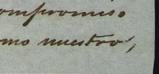 ompromiso
omo nuestro,